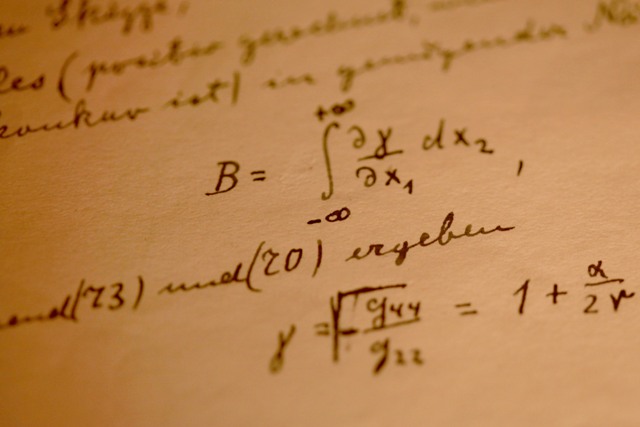 Skizze,
les (positiv gerechnet, 
konkav ist) in genügender
B = ∫_{-∞}^{+∞} ∂γ/∂x₁ dx₂ ,
(73) und (70) ergeben
γ = √(- g₄₄/g₂₂) = 1 + α/2r